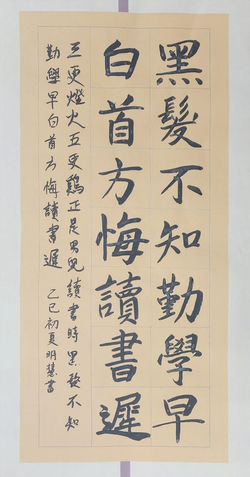 黑髮不知勤學早
白首方悔讀書遲
三更燈火五更鷄正是男兒讀書時黑髮不知
勤學早白首方悔讀書遲 乙巳初夏明慧書